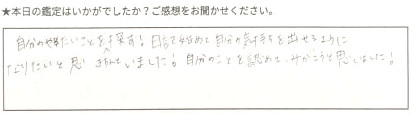 ★本日の鑑定はいかがでしたか?ご感想をお聞かせください。
自分のやりたいことを探す!目を見て改めて自分の気持ちを出せるように
なりたいと思いました!自分のことを認めて、みがこうと思いました!